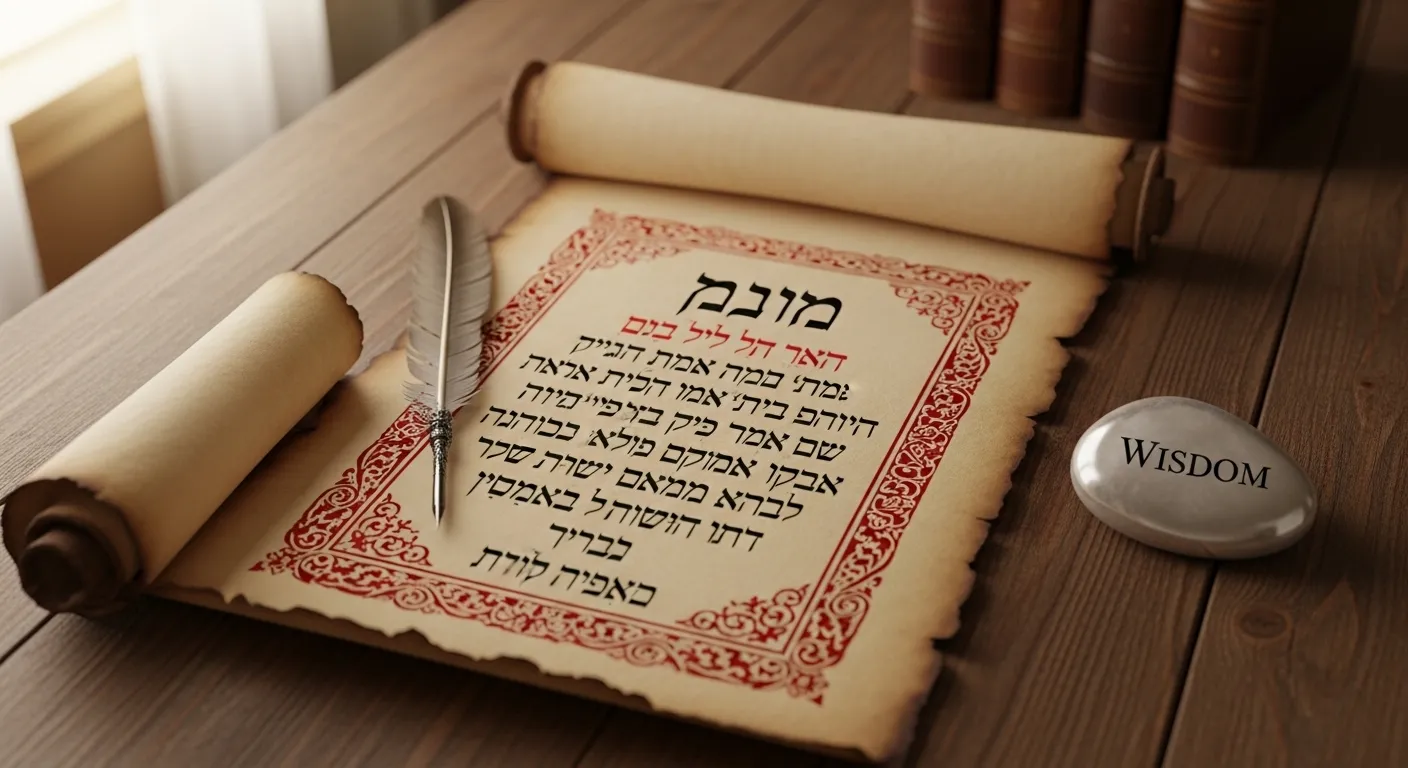 מונמ
האר הל ליל בנם
מת׳ במה אמת הגייק
היוהם בית׳ אמו הלית אראה
שם אמר פיק
אבקו אמוקם פולא בכוהנה
לבהא ממאם ישות שלר
דתו הושוהל באמסין
בבריך
מאפיה לורת
WISDOM